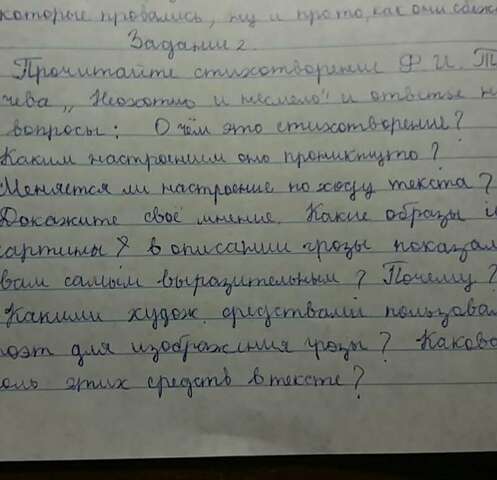 которые провались, ну и прото, как они сближ
Задание 2.
Прочитайте стихотворение Ф И. Т
чева „Неохотно и несмело" и ответье н
вопросы: О чём это стихотворение?
Каким настроением оно проникнуто?
Меняется ли настроение по ходу текста?
Докажите своё мнение. Какие образы и
картины в описании грозы показал
вам самым выразительным? Почему?
Какими худож. средствами пользовал
поэт для изображения грозы? Каково
оль этих средств в тексте?